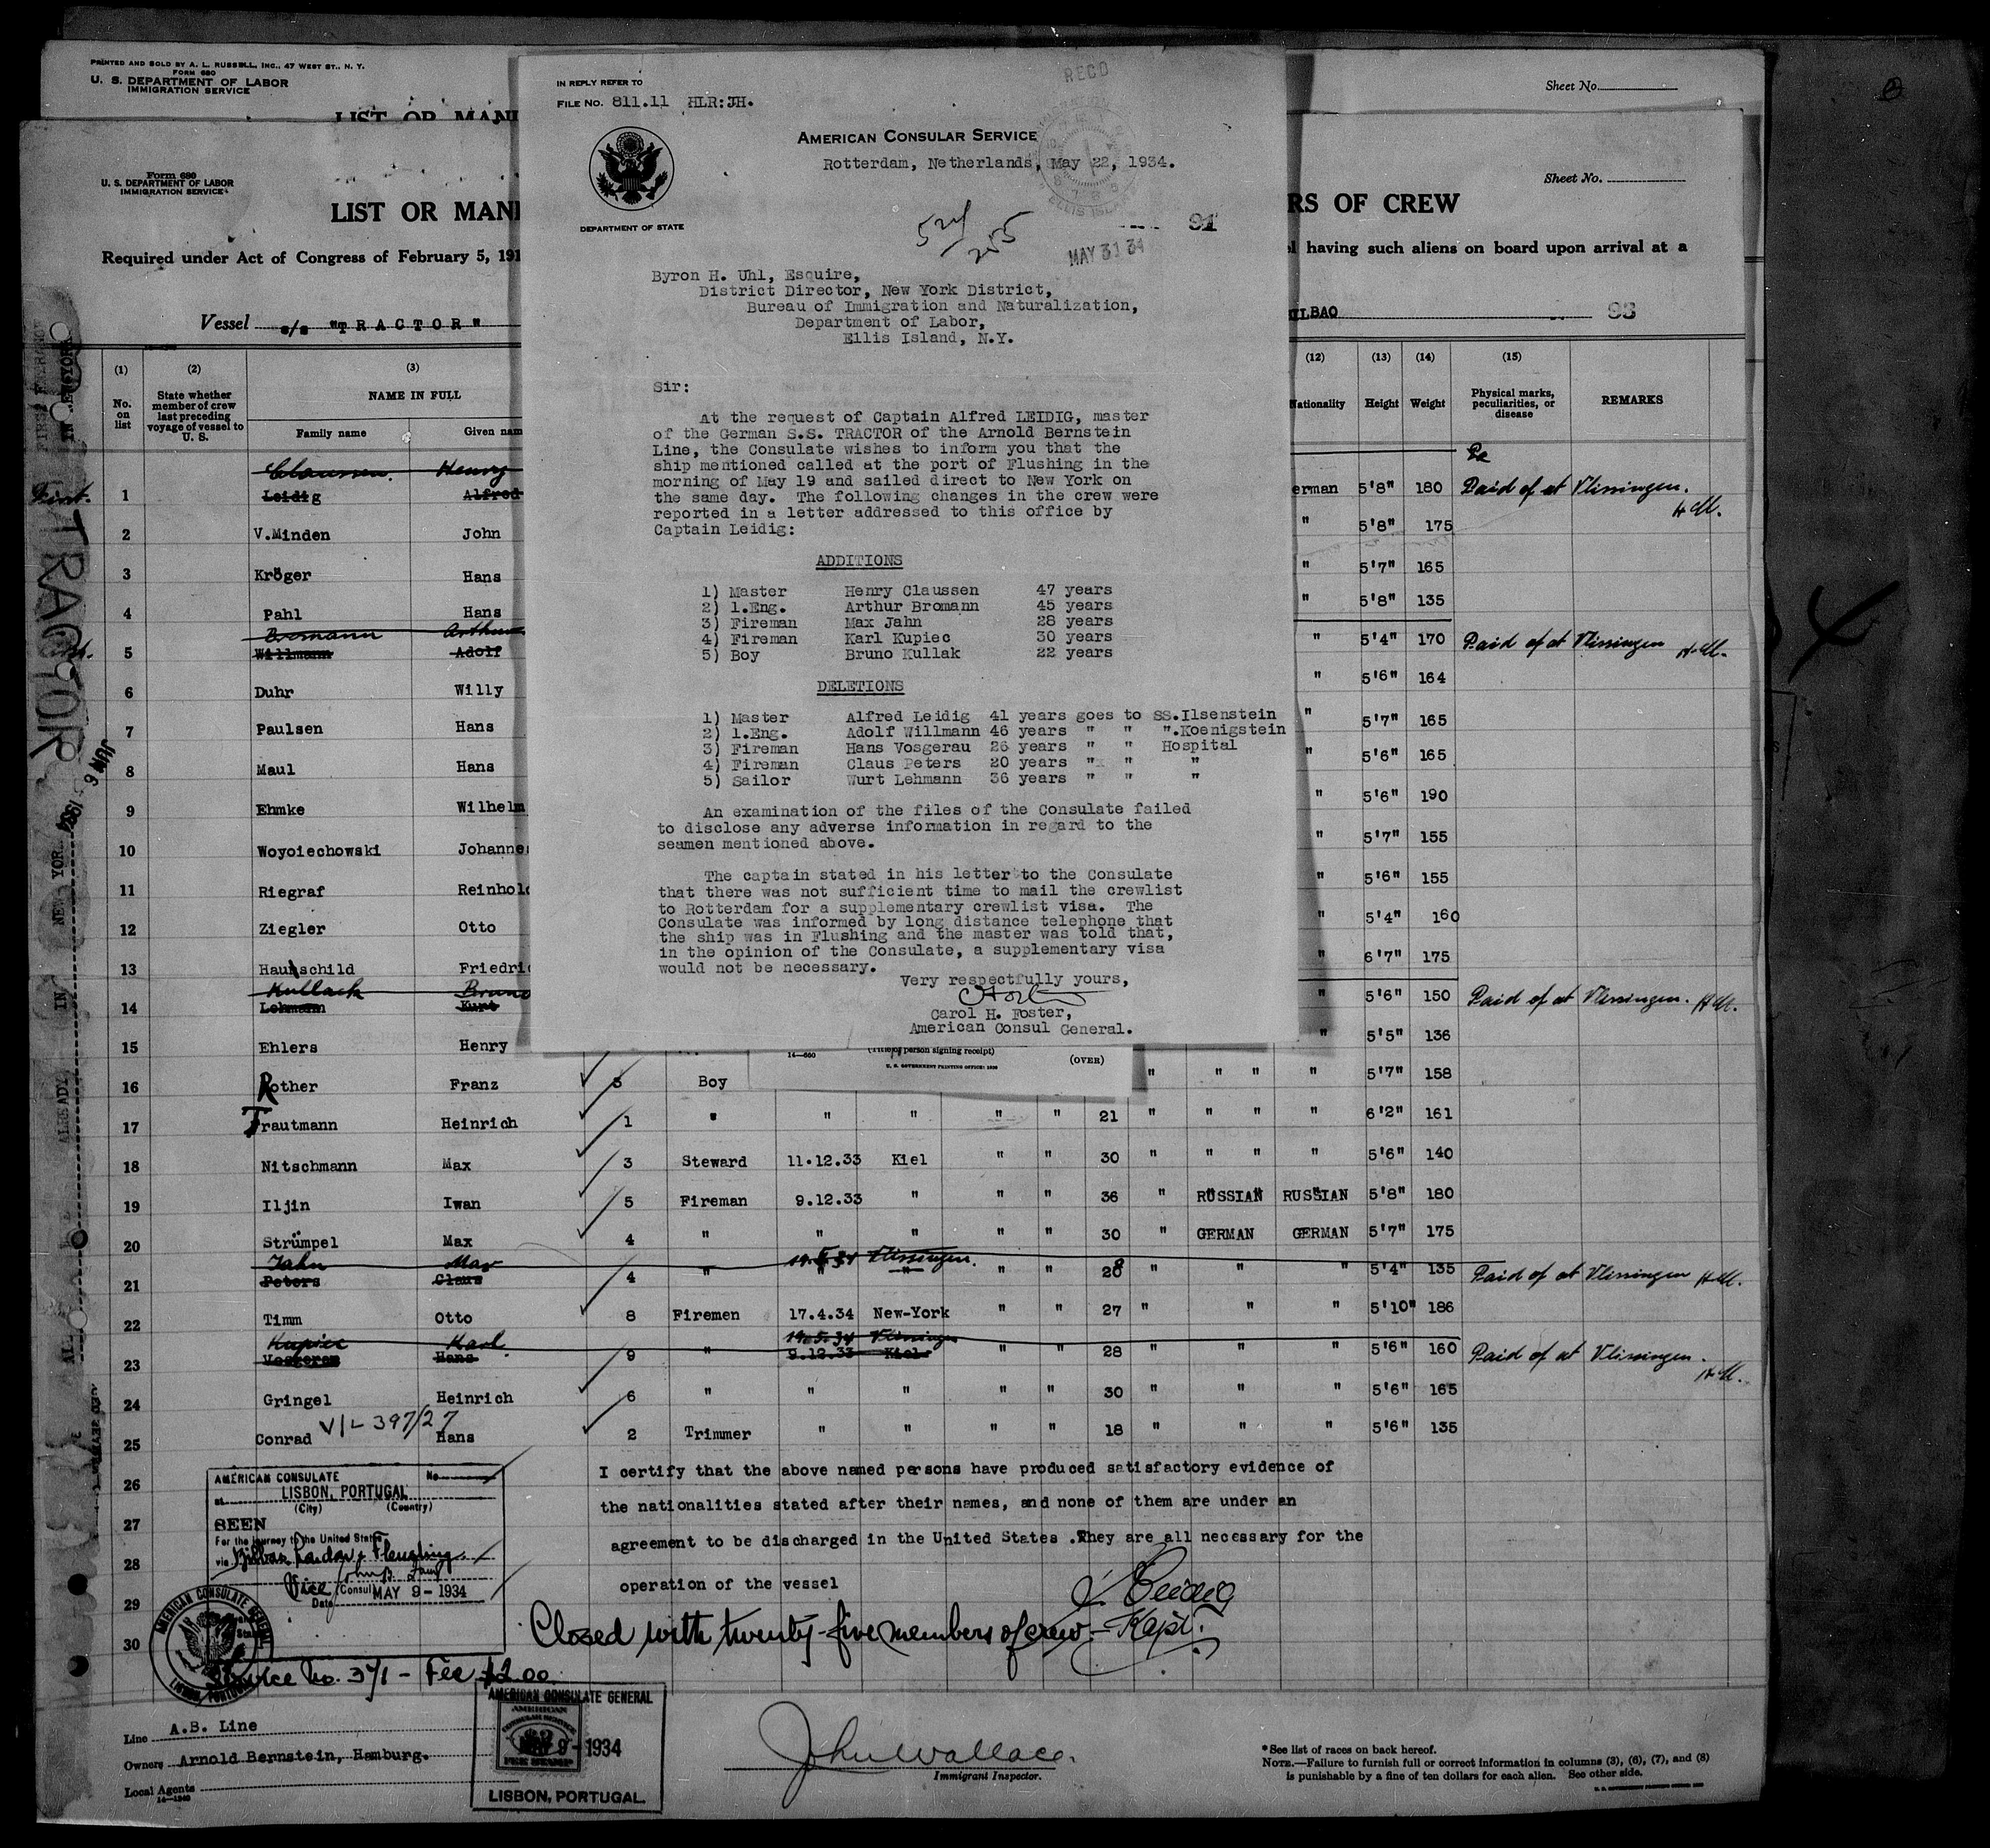 PRINTED AND SOLD BY A. L. RUSSELL, INC., 47 WEST ST., N. Y.
FORM 680
U. S. DEPARTMENT OF LABOR
IMMIGRATION SERVICE
Sheet No.
LIST OR MANI
Form 680
U. S. DEPARTMENT OF LABOR
IMMIGRATION SERVICE
Sheet No.
LIST OR MANI
RS OF CREW
Required under Act of Congress of February 5, 191
l having such aliens on board upon arrival at a
Vessel s/s "TRACTOR"
ILBAO 93
IN REPLY REFER TO
FILE NO. 811.11 HLR:JH.
REC'D
AMERICAN CONSULAR SERVICE
Rotterdam, Netherlands, May 22, 1934.
DEPARTMENT OF STATE
ELLIS ISLAND
91
MAY 31 34
Byron H. Uhl, Esquire,
District Director, New York District,
Bureau of Immigration and Naturalization,
Department of Labor,
Ellis Island, N.Y.
Sir:
At the request of Captain Alfred LEIDIG, master
of the German S.S. TRACTOR of the Arnold Bernstein
Line, the Consulate wishes to inform you that the
ship mentioned called at the port of Flushing in the
morning of May 19 and sailed direct to New York on
the same day. The following changes in the crew were
reported in a letter addressed to this office by
Captain Leidig:
ADDITIONS
1) Master Henry Claussen 47 years
2) 1.Eng. Arthur Bromann 45 years
3) Fireman Max Jahn 28 years
4) Fireman Karl Kupiec 30 years
5) Boy Bruno Kullak 22 years
DELETIONS
1) Master Alfred Leidig 41 years goes to SS.Ilsenstein
2) 1.Eng. Adolf Willmann 46 years " " ".Koenigstein
3) Fireman Hans Vosgerau 26 years " " Hospital
4) Fireman Claus Peters 20 years " " "
5) Sailor Wurt Lehmann 36 years " " "
An examination of the files of the Consulate failed
to disclose any adverse information in regard to the
seamen mentioned above.
The captain stated in his letter to the Consulate
that there was not sufficient time to mail the crewlist
to Rotterdam for a supplementary crewlist visa. The
Consulate was informed by long distance telephone that
the ship was in Flushing and the master was told that,
in the opinion of the Consulate, a supplementary visa
would not be necessary.
Very respectfully yours,
Carol H. Foster,
American Consul General.
(Title of person signing receipt)
14—660
U. S. GOVERNMENT PRINTING OFFICE: 1930
(OVER)
(1) (2) (3) (12) (13) (14) (15)
No. on list
State whether member of crew last preceding voyage of vessel to U. S.
NAME IN FULL
Family name Given nam
Nationality Height Weight
Physical marks, peculiarities, or disease
REMARKS
TRACTOR
JUN 6 1934
Claussen. Henry
First. 1 Leidig Alfred erman 5'8" 180 Paid of at Vlissingen. H.Cl.
2 V.Minden John " 5'8" 175
3 Kröger Hans " 5'7" 165
4 Pahl Hans " 5'8" 135
Bromann Arthur
5 Willmann Adolf " 5'4" 170 Paid of at Vlissingen H.Cl.
6 Duhr Willy " 5'6" 164
7 Paulsen Hans " 5'7" 165
8 Maul Hans " 5'6" 165
9 Ehmke Wilhelm " 5'6" 190
10 Woyoiechowski Johanne " 5'7" 155
11 Riegraf Reinhold " 5'6" 155
12 Ziegler Otto " 5'4" 160
13 Hauschild Friedri " 6'7" 175
Kullack Bruno
14 Lehmann Kurt " 5'6" 150 Paid of at Vlissingen. H.Cl.
15 Ehlers Henry 5'5" 136
16 Rother Franz 3 Boy " " " " 5'7" 158
17 Trautmann Heinrich 1 " " " " " 21 " " " " 6'2" 161
18 Nitschmann Max 3 Steward 11.12.33 Kiel " " 30 " " " " 5'6" 140
19 Iljin Iwan 5 Fireman 9.12.33 " " " 36 " RUSSIAN RUSSIAN 5'8" 180
20 Strümpel Max 4 " " " " " 30 " GERMAN GERMAN 5'7" 175
Jahn Max Vlissingen.
21 Peters Claus 4 " " " " " 28 " " " 5'4" 135 Paid of at Vlissingen H.Cl.
22 Timm Otto 8 Firemen 17.4.34 New-York " " 27 " " " 5'10" 186
Kupiec Karl. 19.5.34 Vlissingen
23 Vosgerau Hans 9 " 9.12.33 Kiel " " 28 " " " 5'6" 160 Paid of at Vlissingen. H.Cl.
24 Gringel Heinrich 6 " " " " " 30 " " " 5'6" 165
V/L 397/27
25 Conrad Hans 2 Trimmer " " " " 18 " " " 5'6" 135
26
27
28
29
30
I certify that the above named persons have produced satisfactory evidence of
the nationalities stated after their names, and none of them are under an
agreement to be discharged in the United States .They are all necessary for the
operation of the vessel
Leidig
Kapt.
Closed with twenty-five members of crew.
AMERICAN CONSULATE No.
at LISBON, PORTUGAL
(City) (Country)
SEEN
For the journey to the United States
via Bilbao, London & Flushing
Vice (Consul
Date MAY 9 - 1934
AMERICAN CONSULATE GENERAL
LISBON, PORTUGAL
Service No. 371 - Fee $2.00.
AMERICAN CONSULATE GENERAL
AMERICAN
CONSULAR SERVICE
FEE STAMP
MAY 9 - 1934
LISBON, PORTUGAL.
Line A.B. Line
Owners Arnold Bernstein, Hamburg.
Local Agents
14—1240
John Wallace.
Immigrant Inspector.
*See list of races on back hereof.
NOTE.—Failure to furnish full or correct information in columns (3), (6), (7), and (8)
is punishable by a fine of ten dollars for each alien. See other side.